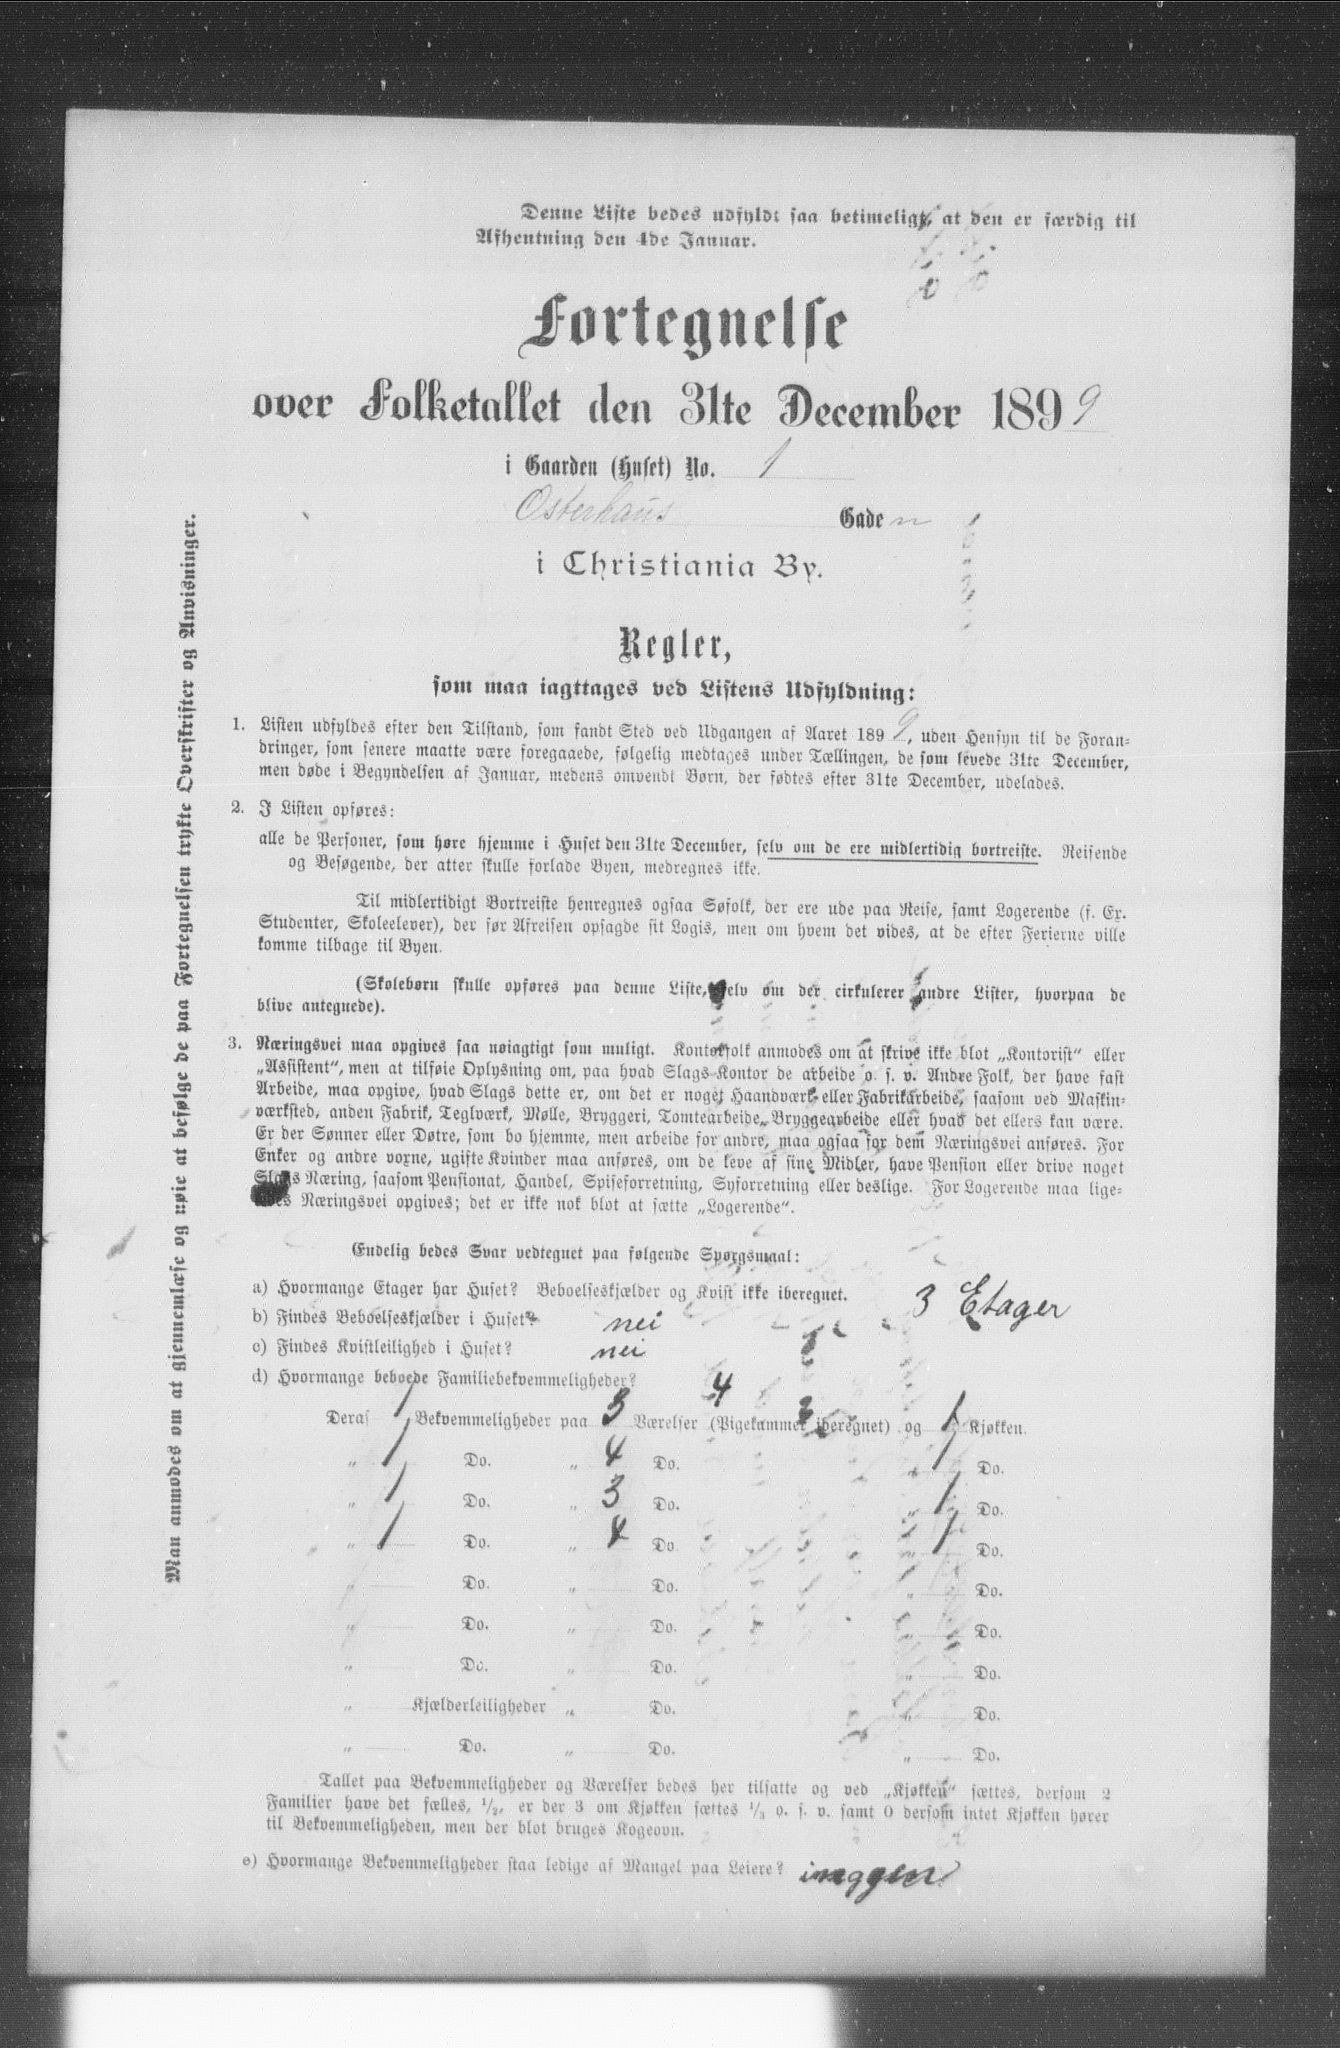 Denne Liste bedes udfyldt saa betimeligt, at den er færdig til
Afhentning den 4de Januar.
Fortegnelse
over Folketallet den 31te December 1899
i Gaarden (Huset) No. 1
Osterhaus Gaden
i Christiania By.
Regler,
som maa iagttages ved Listens Udfyldning:
1. Listen udfyldes efter den Tilstand, som fandt Sted ved Udgangen af Aaret 1899, uden Hensyn til de Foran-
dringer, som senere maatte være foregaaede, følgelig medtages under Tællingen, de som levede 31te December,
men døde i Begyndelsen af Januar, medens omvendt Børn, der fødtes efter 31te December, udelades.
2. I Listen opføres:
alle de Personer, som høre hjemme i Huset den 31te December, selv om de ere midlertidig bortreiste. Reisende
og Besøgende, der atter skulle forlade Byen, medregnes ikke.
Til midlertidigt Bortreiste henregnes ogsaa Søfolk, der ere ude paa Reise, samt Logerende (f. Ex.
Studenter, Skoleelever), der før Afreisen opsagde sit Logis, men om hvem det vides, at de efter Ferierne ville
komme tilbage til Byen.
(Skolebørn skulle opføres paa denne Liste, selv om der cirkulerer andre Lister, hvorpaa de
blive antegnede).
3. Næringsvei maa opgives saa nøiagtigt som muligt. Kontorfolk anmodes om at skrive ikke blot „Kontorist“ eller
„Assistent“, men at tilføie Oplysning om, paa hvad Slags Kontor de arbeide o. s. v. Andre Folk, der have fast
Arbeide, maa opgive, hvad Slags dette er, om det er noget Haandværk eller Fabrikarbeide, saasom ved Maskin-
værksted, anden Fabrik, Teglværk, Mølle, Bryggeri, Tomtearbeide, Bryggearbeide eller hvad det ellers kan være.
Er der Sønner eller Døtre, som bo hjemme, men arbeide for andre, maa ogsaa for dem Næringsvei anføres. For
Enker og andre voxne, ugifte Kvinder maa anføres, om de leve af sine Midler, have Pension eller drive noget
Slags Næring, saasom Pensionat, Handel, Spiseforretning, Syforretning eller deslige. For Logerende maa lige-
ledes Næringsvei opgives; det er ikke nok blot at sætte „Logerende“.
Endelig bedes Svar vedtegnet paa følgende Spørgsmaal:
a) Hvormange Etager har Huset? Beboelseskjælder og Kvist ikke iberegnet. 3 Etager
b) Findes Beboelseskjælder i Huset? nei
c) Findes Kvistleilighed i Huset? nei
d) Hvormange beboede Familiebekvemmeligheder? 4
Deraf 1 Bekvemmeligheder paa 3 Værelser (Pigekammer iberegnet) og 1 Kjøkken.
„ 1 Do. „ 4 Do. „ 1 Do.
„ 1 Do. „ 3 Do. „ 1 Do.
„ 1 Do. „ 4 Do. „ 1 Do.
„ Do. „ Do. „ Do.
„ Do. „ Do. „ Do.
„ Do. „ Do. „ Do.
„ Kjælderleiligheder „ Do. „ Do.
„ Do. „ Do. „ Do.
Tallet paa Bekvemmeligheder og Værelser bedes her tilsatte og ved „Kjøkken“ sættes, dersom 2
Familier have det fælles, 1/2, er der 3 om Kjøkken sættes 1/3 o. s. v. samt 0 dersom intet Kjøkken hører
til Bekvemmeligheden, men der blot bruges Kogeovn.
e) Hvormange Bekvemmeligheder staa ledige af Mangel paa Leiere? inggen
Man anmodes om at gjennemlæse og nøie at befølge de paa Fortegnelsen trykte Overskrifter og Anvisninger.